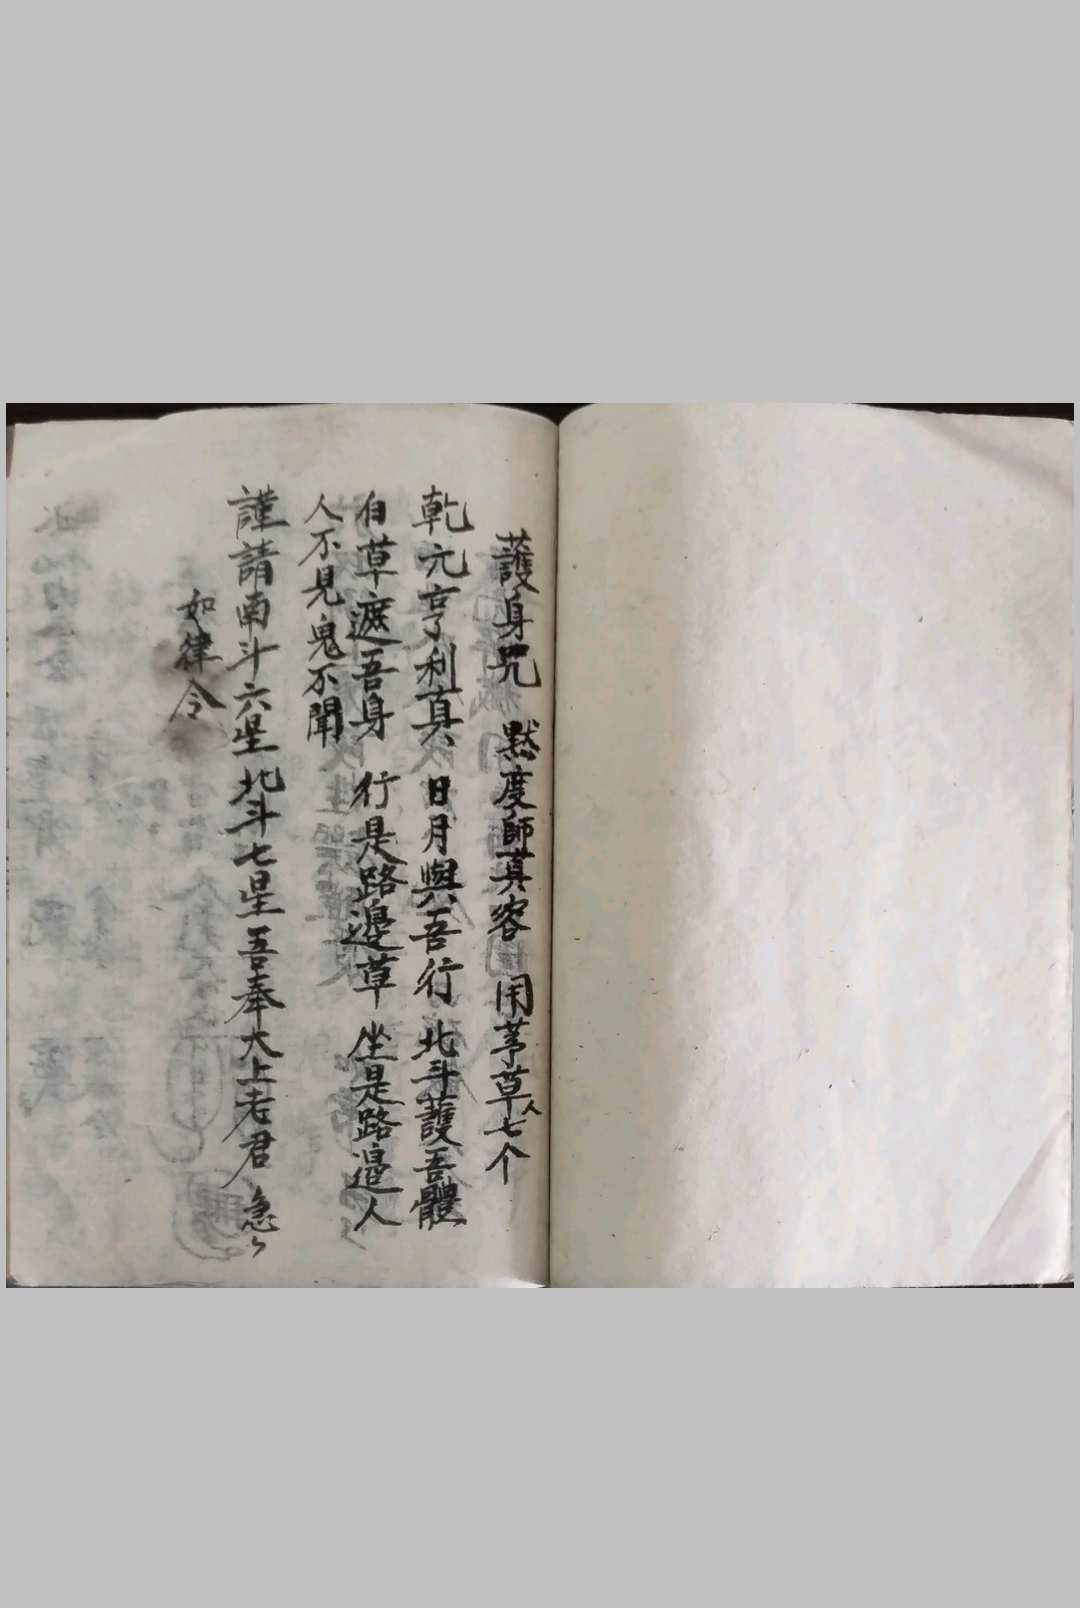 護身咒 黙度師真容 用茅草七个人
乾元亨利真 日月與吾行 北斗護吾體
白草遮吾身 行是路邉草 坐是路邉人
人不見鬼不聞
謹請南斗六星北斗七星吾奉大上老君 急〻
如律令